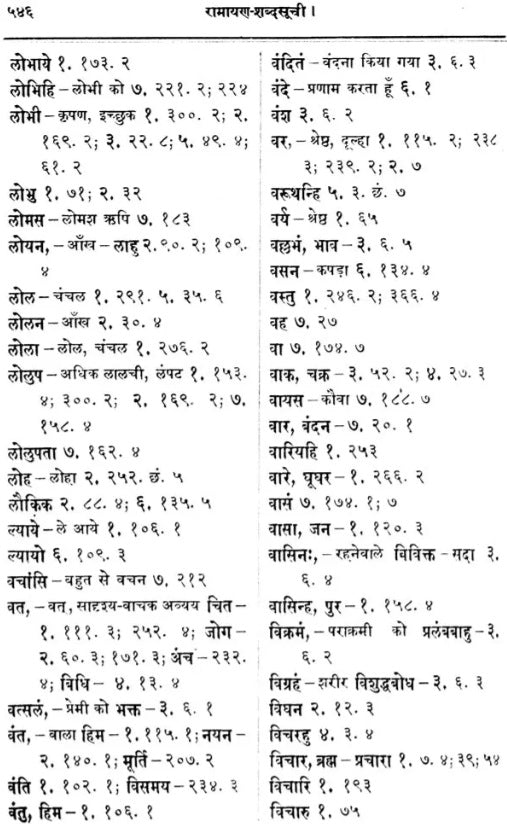 ५४६
रामायण-शब्दसूची।
लोभाये १. १७३. २
लोभिहि – लोभी को ७. २२१. २; २२४
लोभी – कृपण, इच्छुक १. ३००. २; २.
१६९. २; ३. २२. ८; ५. ४९. ४;
६१. २
लोभु १. ७१; २. ३२
लोमस – लोमश ऋषि ७. १८३
लोयन, – आँख – लाहु २. ९०. २; १०९.
४
लोल – चंचल १. २९१. ५. ३५. ६
लोलन – आँख २. ३०. ४
लोला – लोल, चंचल १. २७६. २
लोलुप – अधिक लालची, लंपट १. १५३.
४; ३००. २; २. १६९. २; ७.
१५८. ४
लोलुपता ७. १६२. ४
लोह – लोहा २. २५२. छं. ५
लौकिक २. ८८. ४; ६. १३५. ५
ल्याये – ले आये १. १०६. १
ल्यायो ६. १०९. ३
वचांसि – बहुत से वचन ७. २१२
वत, – वत्, सादृश्य-वाचक अव्यय चित –
१. १११. ३; २५२. ४; जोग –
२. ६०. ३; १७१. ३; अंच – २३२.
४; विधि – ४. १३. ४
वत्सलं, – प्रेमी को भक्त – ३. ६. १
वंत, – वाला हिम – १. ११५. १; नयन –
२. १४०. १; मूर्ति – २०७. २
वंति १. १०२. १; विसमय – २३४. ३
वंतु, हिम – १. १०६. १
वंदितं – वंदना किया गया ३. ६. ३
वंदे – प्रणाम करता हूँ ६. १
वंश ३. ६. २
वर, – श्रेष्ठ, दूल्हा १. ११५. २; २३८
३; २३९. २; २. ७
वरूथन्हि ५. ३. छं. ७
वर्य – श्रेष्ठ १. ६५
वल्लभं, भाव – ३. ६. ५
वसन – कपड़ा ६. १३४. ४
वस्तु १. २४६. २; ३६६. ४
वह ७. २७
वा ७. १७४. ७
वाक, चक्र – ३. ५२. २; ४. २७. ३
वायस – कौवा ७. १८८. ७
वार, बंदन – ७. २०. १
वारियहि १. २५३
वारे, घूघर – १. २६६. २
वासं ७. १७४. १; ७
वासा, जन – १. १२०. ३
वासिनः, – रहनेवाले विविक्त – सदा ३.
६. ४
वासिन्ह, पुर – १. १५८. ४
विक्रमं, – पराक्रमी को प्रलंबबाहु – ३.
६. २
विग्रहं – शरीर विशुद्धबोध – ३. ६. ३
विघन २. १२. ३
विचरहु ४. ३. ४
विचार, ब्रह्म – प्रचारा १. ७. ४; ३९; ५४
विचारि १. १९३
विचारु १. ७५